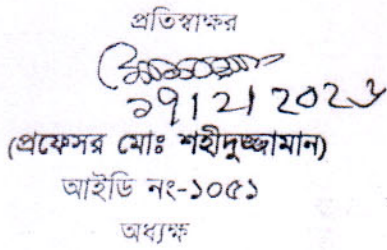 প্রতিস্বাক্ষর
(প্রফেসর মোঃ শহীদুজ্জামান)
আইডি নং-১০৫১
অধ্যক্ষ